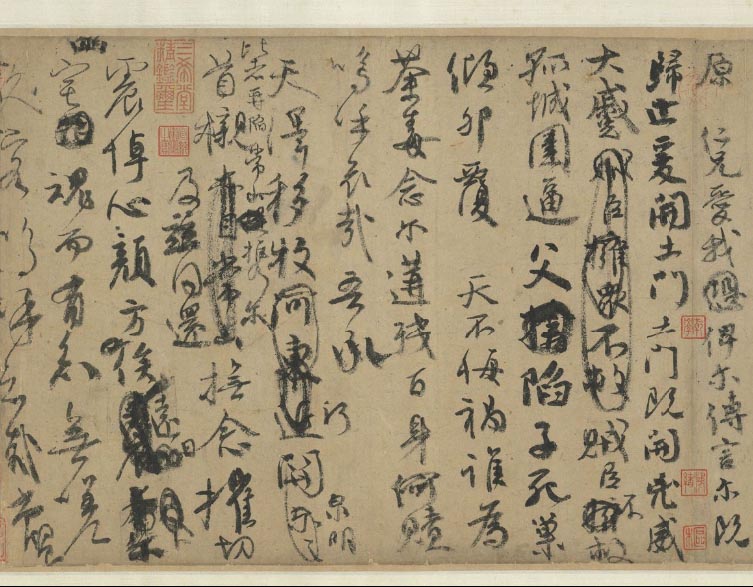 原 仁兄愛我俾爾傳言爾既
歸止爰開土門土門既開凶威
大蹙賊臣擁眾不救賊臣不救
孤城圍逼父陷子死巢
傾卵覆 天不悔禍誰為
荼毒念爾遘殘百身何贖
嗚呼哀哉吾承
天澤移牧河關泉明
比者再陷常山攜爾
首櫬及茲同還撫念摧切
震悼心顏方俟遠日
宅魂而有知無嗟
久客嗚呼哀哉尚饗
三希堂精鑑璽
宜子孫